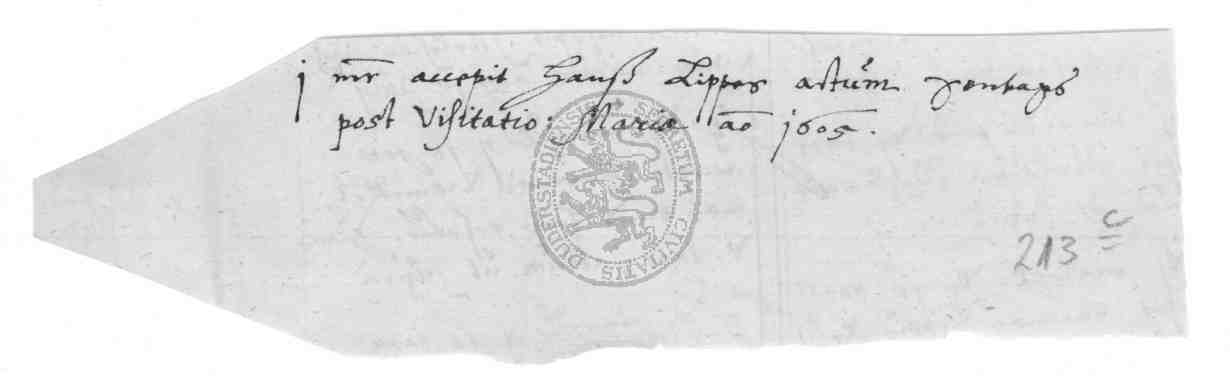 j mr accepit Hanß Lippes actum Sontags
post Visitatio: Mariæ ao 1605.
SECRETUM CIVITATIS DUDERSTADIENSIS
213 c